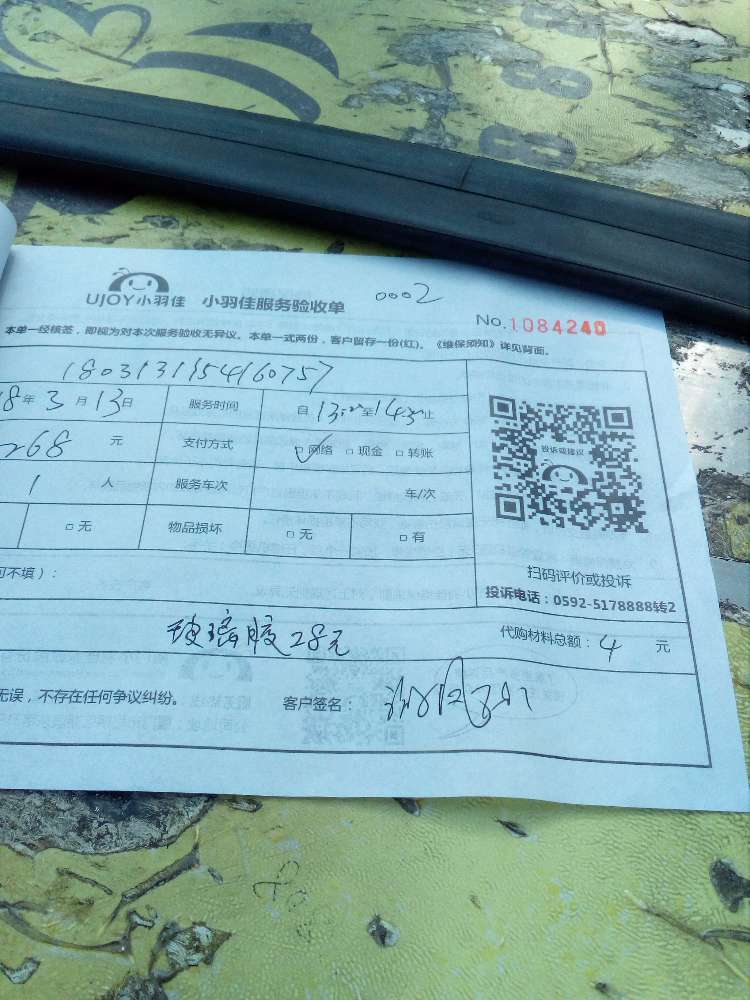 0002
UJOY小羽佳 小羽佳服务验收单
No.1084240
本单一经核签，即视为对本次服务验收无异议。本单一式两份，客户留存一份(红)。《维保须知》详见背面。
1803131154160757
18年3月13日 服务时间 自 13:00 至 14:30 止
268 元 支付方式 □网络 □现金 □转账
1 人 服务车次 车/次
□无 物品损坏 □无 □有
投诉或建议
扫码评价或投诉
投诉电话：0592-5178888转2
可不填）：
玻璃胶28元 代购材料总额：4 元
无误，不存在任何争议纠纷。 客户签名：